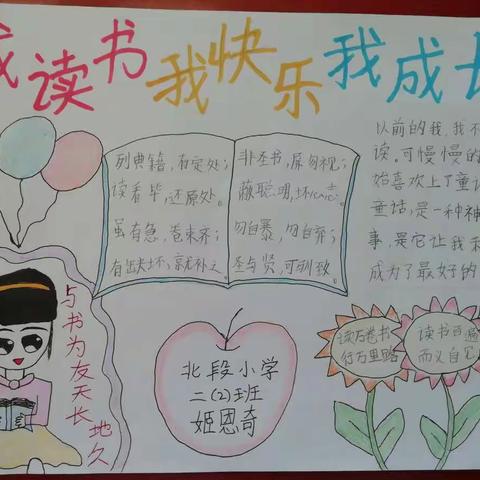 我读书 我快乐 我成长
列典籍，有定处；
读看毕，还原处。
虽有急，卷束齐；
有缺坏，就补之。
非圣书，屏勿视；
蔽聪明，坏心志。
勿自暴，勿自弃；
圣与贤，可驯致。
以前的我，我不
读。可慢慢的
始喜欢上了童话
童话，是一种神
事，是它让我和
成为了最好的
与书为友天长地久
北段小学
二(2)班
姬恩奇
读万卷书
行万里路
读书百遍
而义自见